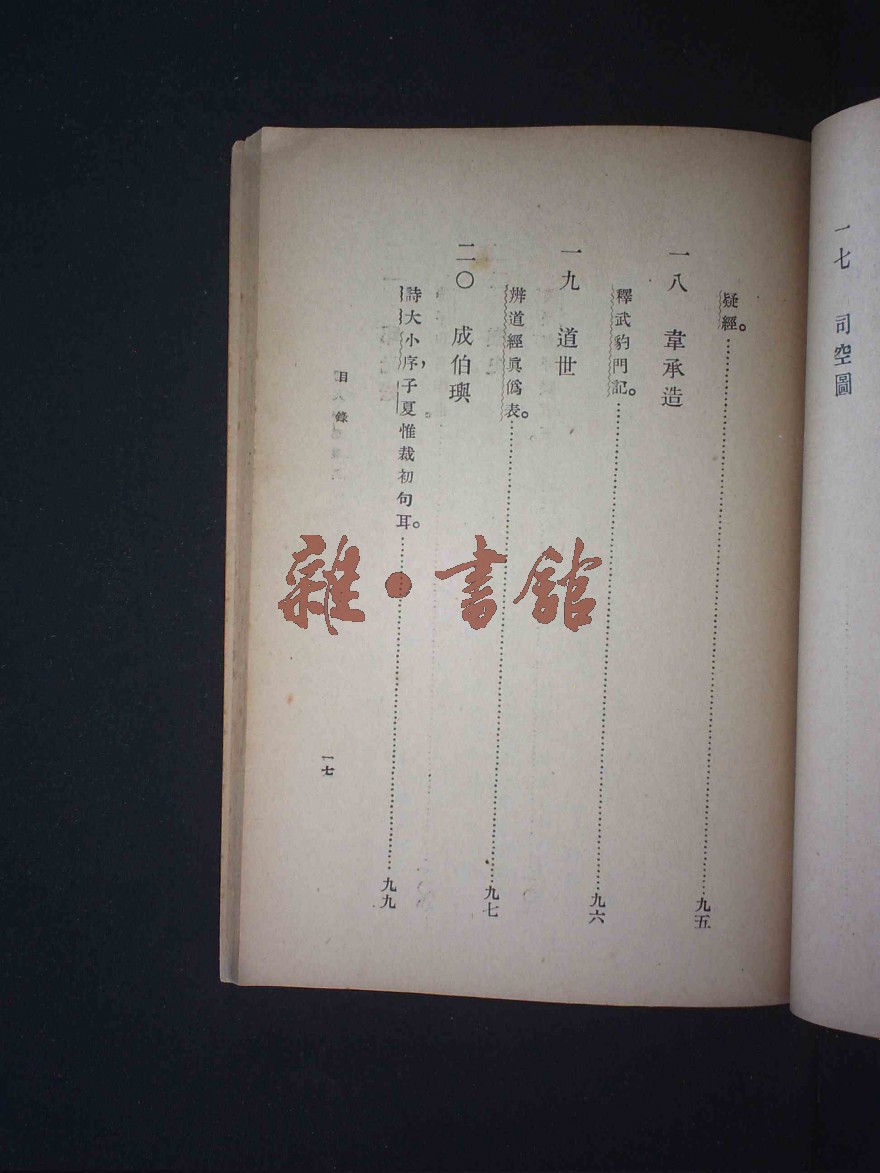 一七　司空圖
疑經。……九五
一八　韋承造
釋武豹門記。……九六
一九　道世
辨道經眞僞表。……九七
二〇　成伯璵
詩大小序，子夏惟裁初句耳。……九九
目錄
一七
雜·書館